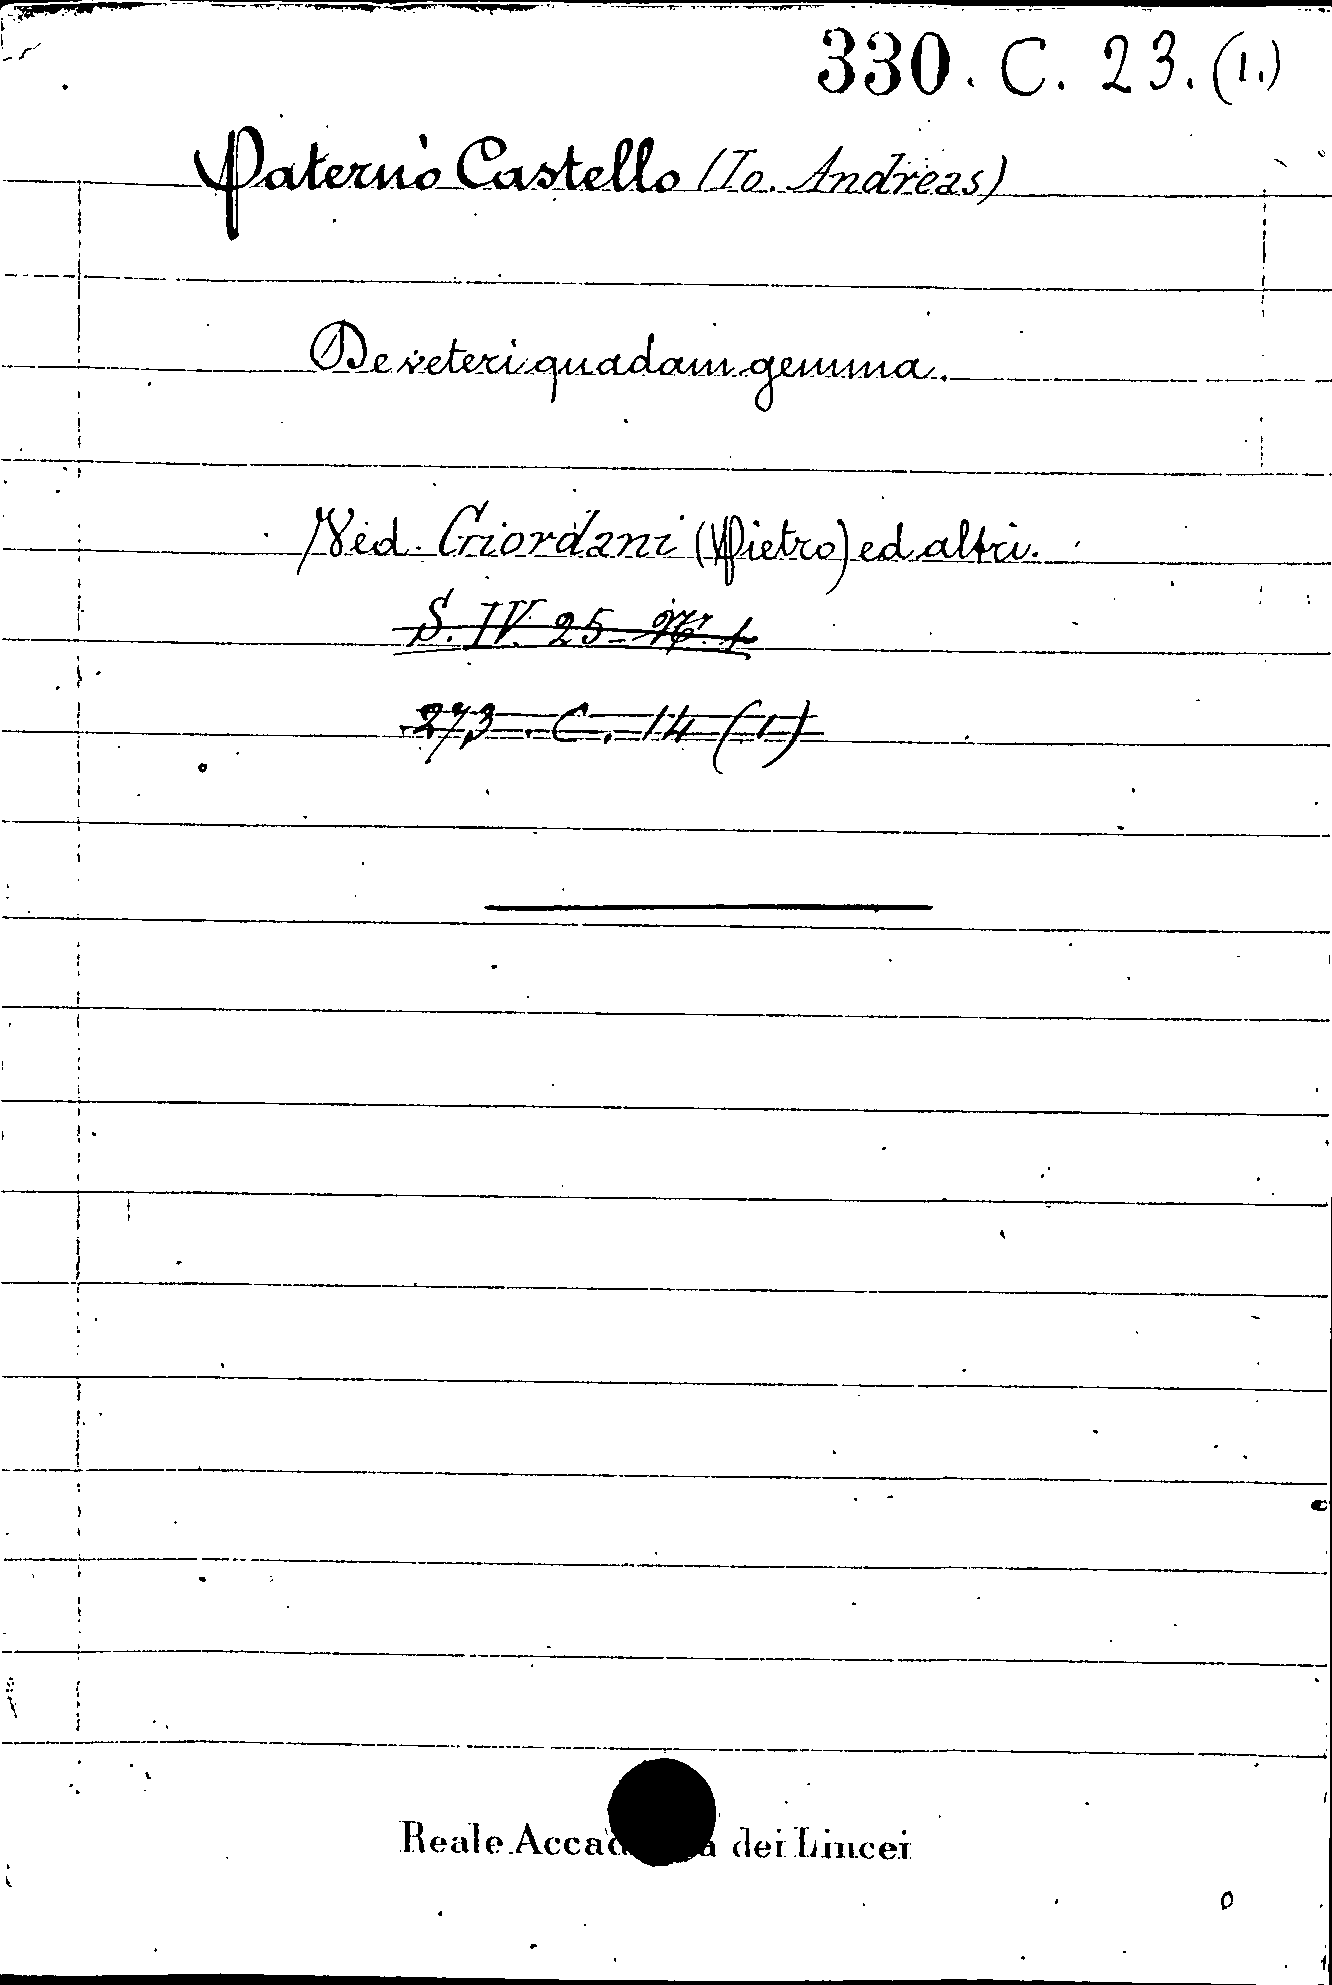 330. C. 23. (1.)
Paternò Castello (Io. Andreas)
De veteri quadam gemma.
Ved. Giordani (Pietro) ed altri.
S. IV. 25
273. C. 14 (1)
Reale Accad a dei Lincei